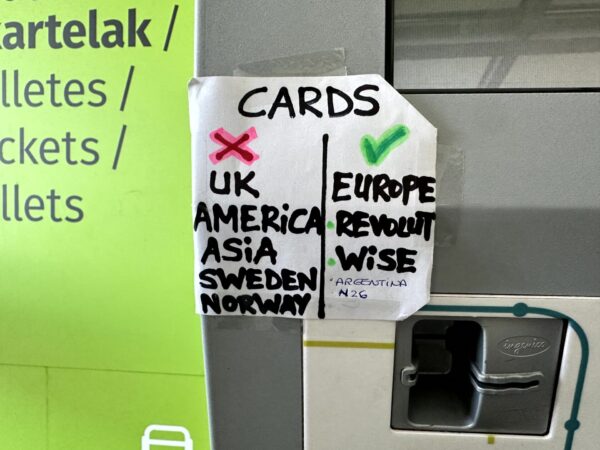 kartelak /
lletes /
ckets /
llets
CARDS
UK
AMERICA
ASIA
SWEDEN
NORWAY
EUROPE
· REVOLUT
· WISE
· ARGENTINA
· N26
ingenico